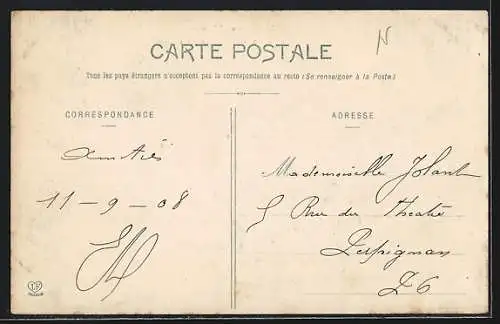 CARTE POSTALE
Tous les pays étrangers n'acceptent pas la correspondance au recto (Se renseigner à la Poste)
CORRESPONDANCE
ADRESSE
Amitiés
11-9-08
Mademoiselle
5 Rue du Théatre
Perpignan